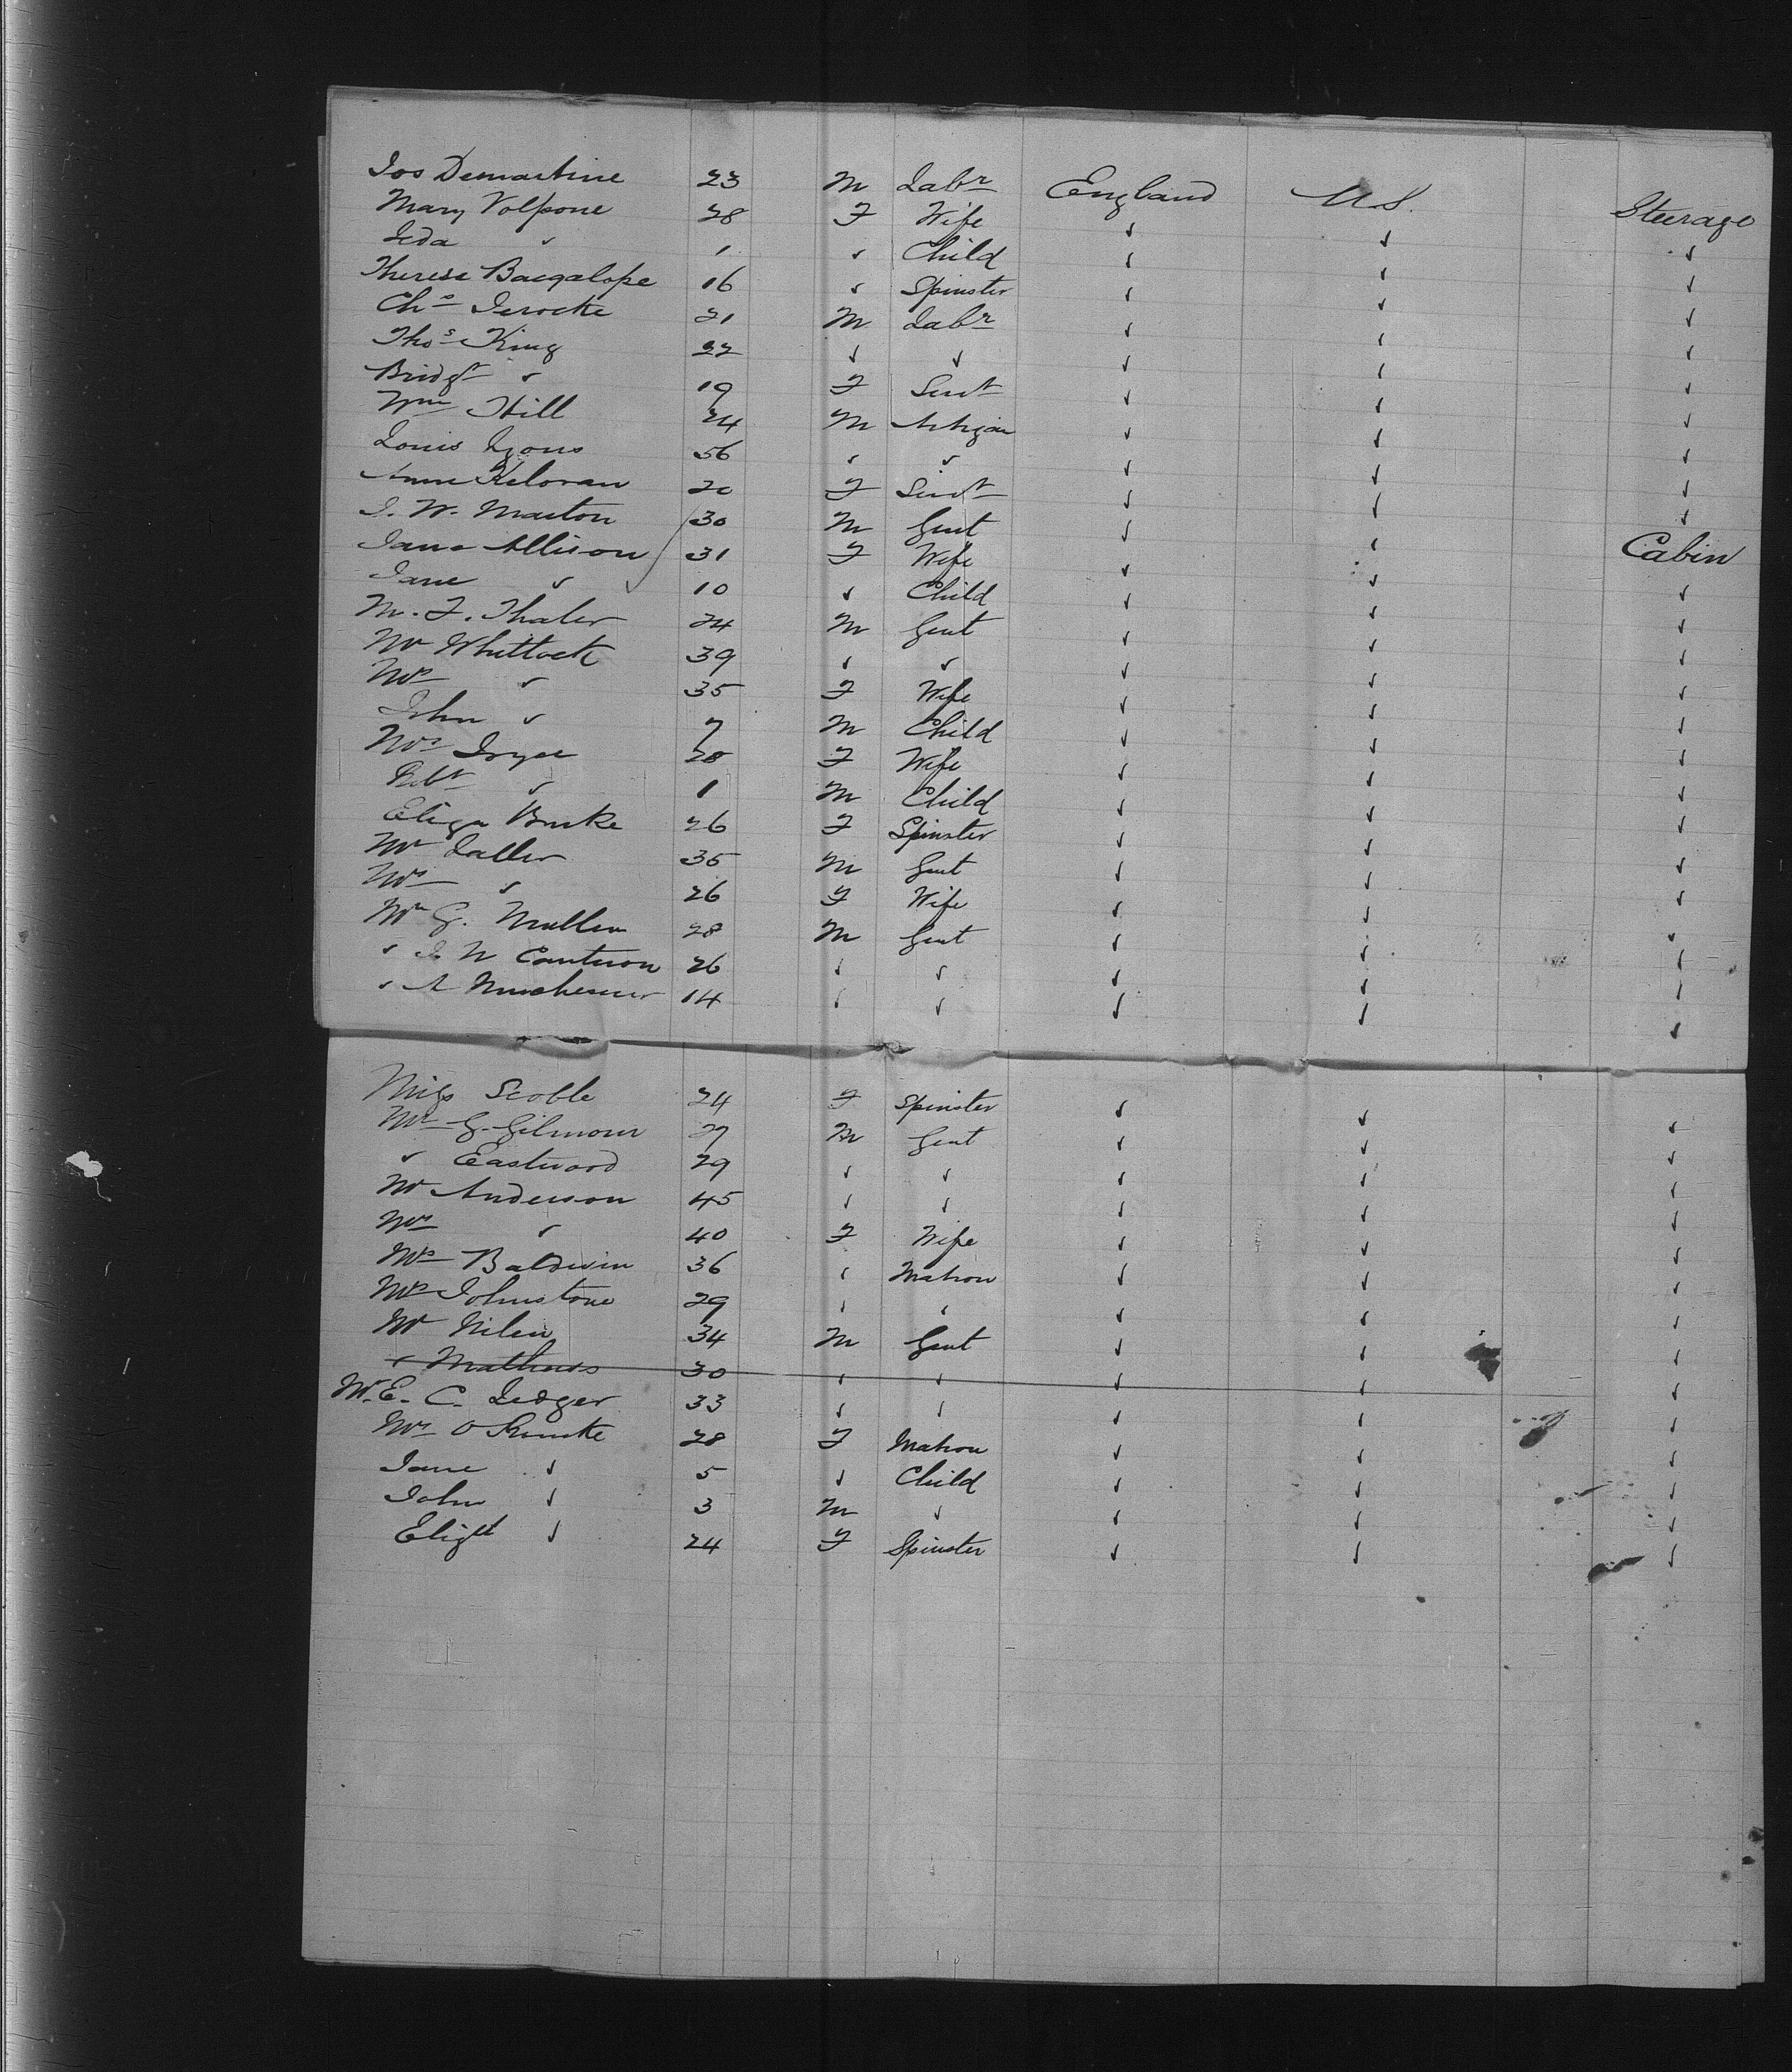 Jos Demartine 23 M Labr England U.S. Steerage
Mary Volpone 28 F Wife ✓ ✓ ✓
Ieda ✓ 1 ✓ Child ✓ ✓ ✓
Theresa Bacgalope 16 ✓ Spinster ✓ ✓ ✓
Chs 21 M Labr ✓ ✓ ✓
Thos King 22 ✓ ✓ ✓ ✓ ✓
Bridgt ✓ 19 F Servt ✓ ✓ ✓
Wm Hill 24 M Artizan ✓ ✓ ✓
Louis Lyons 56 ✓ ✓ ✓ ✓ ✓
Anne Keloran 20 F Servt ✓ ✓ ✓
J. W. Marton 30 M Gent ✓ ✓ Cabin
Jane Allison 31 F Wife ✓ ✓ ✓
Jane ✓ 10 ✓ Child ✓ ✓ ✓
M. F. Thaler 24 M Gent ✓ ✓ ✓
Mr Whittock 39 ✓ ✓ ✓ ✓ ✓
Mrs ✓ 35 F Wife ✓ ✓ ✓
John ✓ 7 M Child ✓ ✓ ✓
Mrs Joyce 28 F Wife ✓ ✓ ✓
Robt ✓ 1 M Child ✓ ✓ ✓
Eliza Burke 26 F Spinster ✓ ✓ ✓
Mr Laller 35 M Gent ✓ ✓ ✓
Mrs ✓ 26 F Wife ✓ ✓ ✓
Mr G. Mullen 28 M Gent ✓ ✓ ✓
✓ J W Cantwon 26 ✓ ✓ ✓ ✓ ✓
✓ A 14 ✓ ✓ ✓ ✓ ✓
Miss Scoble 24 F Spinster ✓ ✓ ✓
Mr G. Gilmour 27 M Gent ✓ ✓ ✓
✓ Eastwood 29 ✓ ✓ ✓ ✓ ✓
Mr Anderson 45 ✓ ✓ ✓ ✓ ✓
Mrs ✓ 40 F Wife ✓ ✓ ✓
Mrs Baldwin 36 ✓ Matron ✓ ✓ ✓
Mrs Johnstone 29 ✓ ✓ ✓ ✓ ✓
Mr Nilen 34 M Gent ✓ ✓ ✓
✓ Mathews 30 ✓ ✓ ✓ ✓ ✓
Mr. E. C. Ledger 33 ✓ ✓ ✓ ✓ ✓
Mrs O Rourke 28 F Matron ✓ ✓ ✓
Jane ✓ 5 ✓ Child ✓ ✓ ✓
John ✓ 3 M ✓ ✓ ✓ ✓
Elizt ✓ 24 F Spinster ✓ ✓ ✓